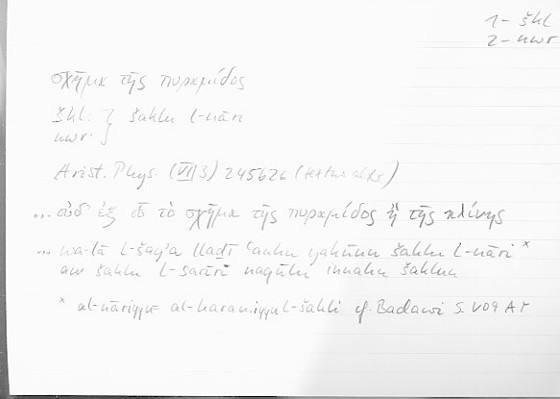 1- škl
2- nwr
σχῆμα τῆς πυραμίδος
škl: } šaklu l-nāri
nwr: }
Arist. Phys. (VII 3) 245b26 (textus alter)
... οὐδ' ἐξ οὗ τὸ σχῆμα τῆς πυραμίδος ἢ τῆς κλίνης
... wa-lā l-šay'a lladī 'anhu yakūnu šaklu l-nāri *
aw šaklu l-sarīri naqūlu innahu šaklun
* al-nāriyyu al-haramiyyu l-šakli cf. Badawi S.